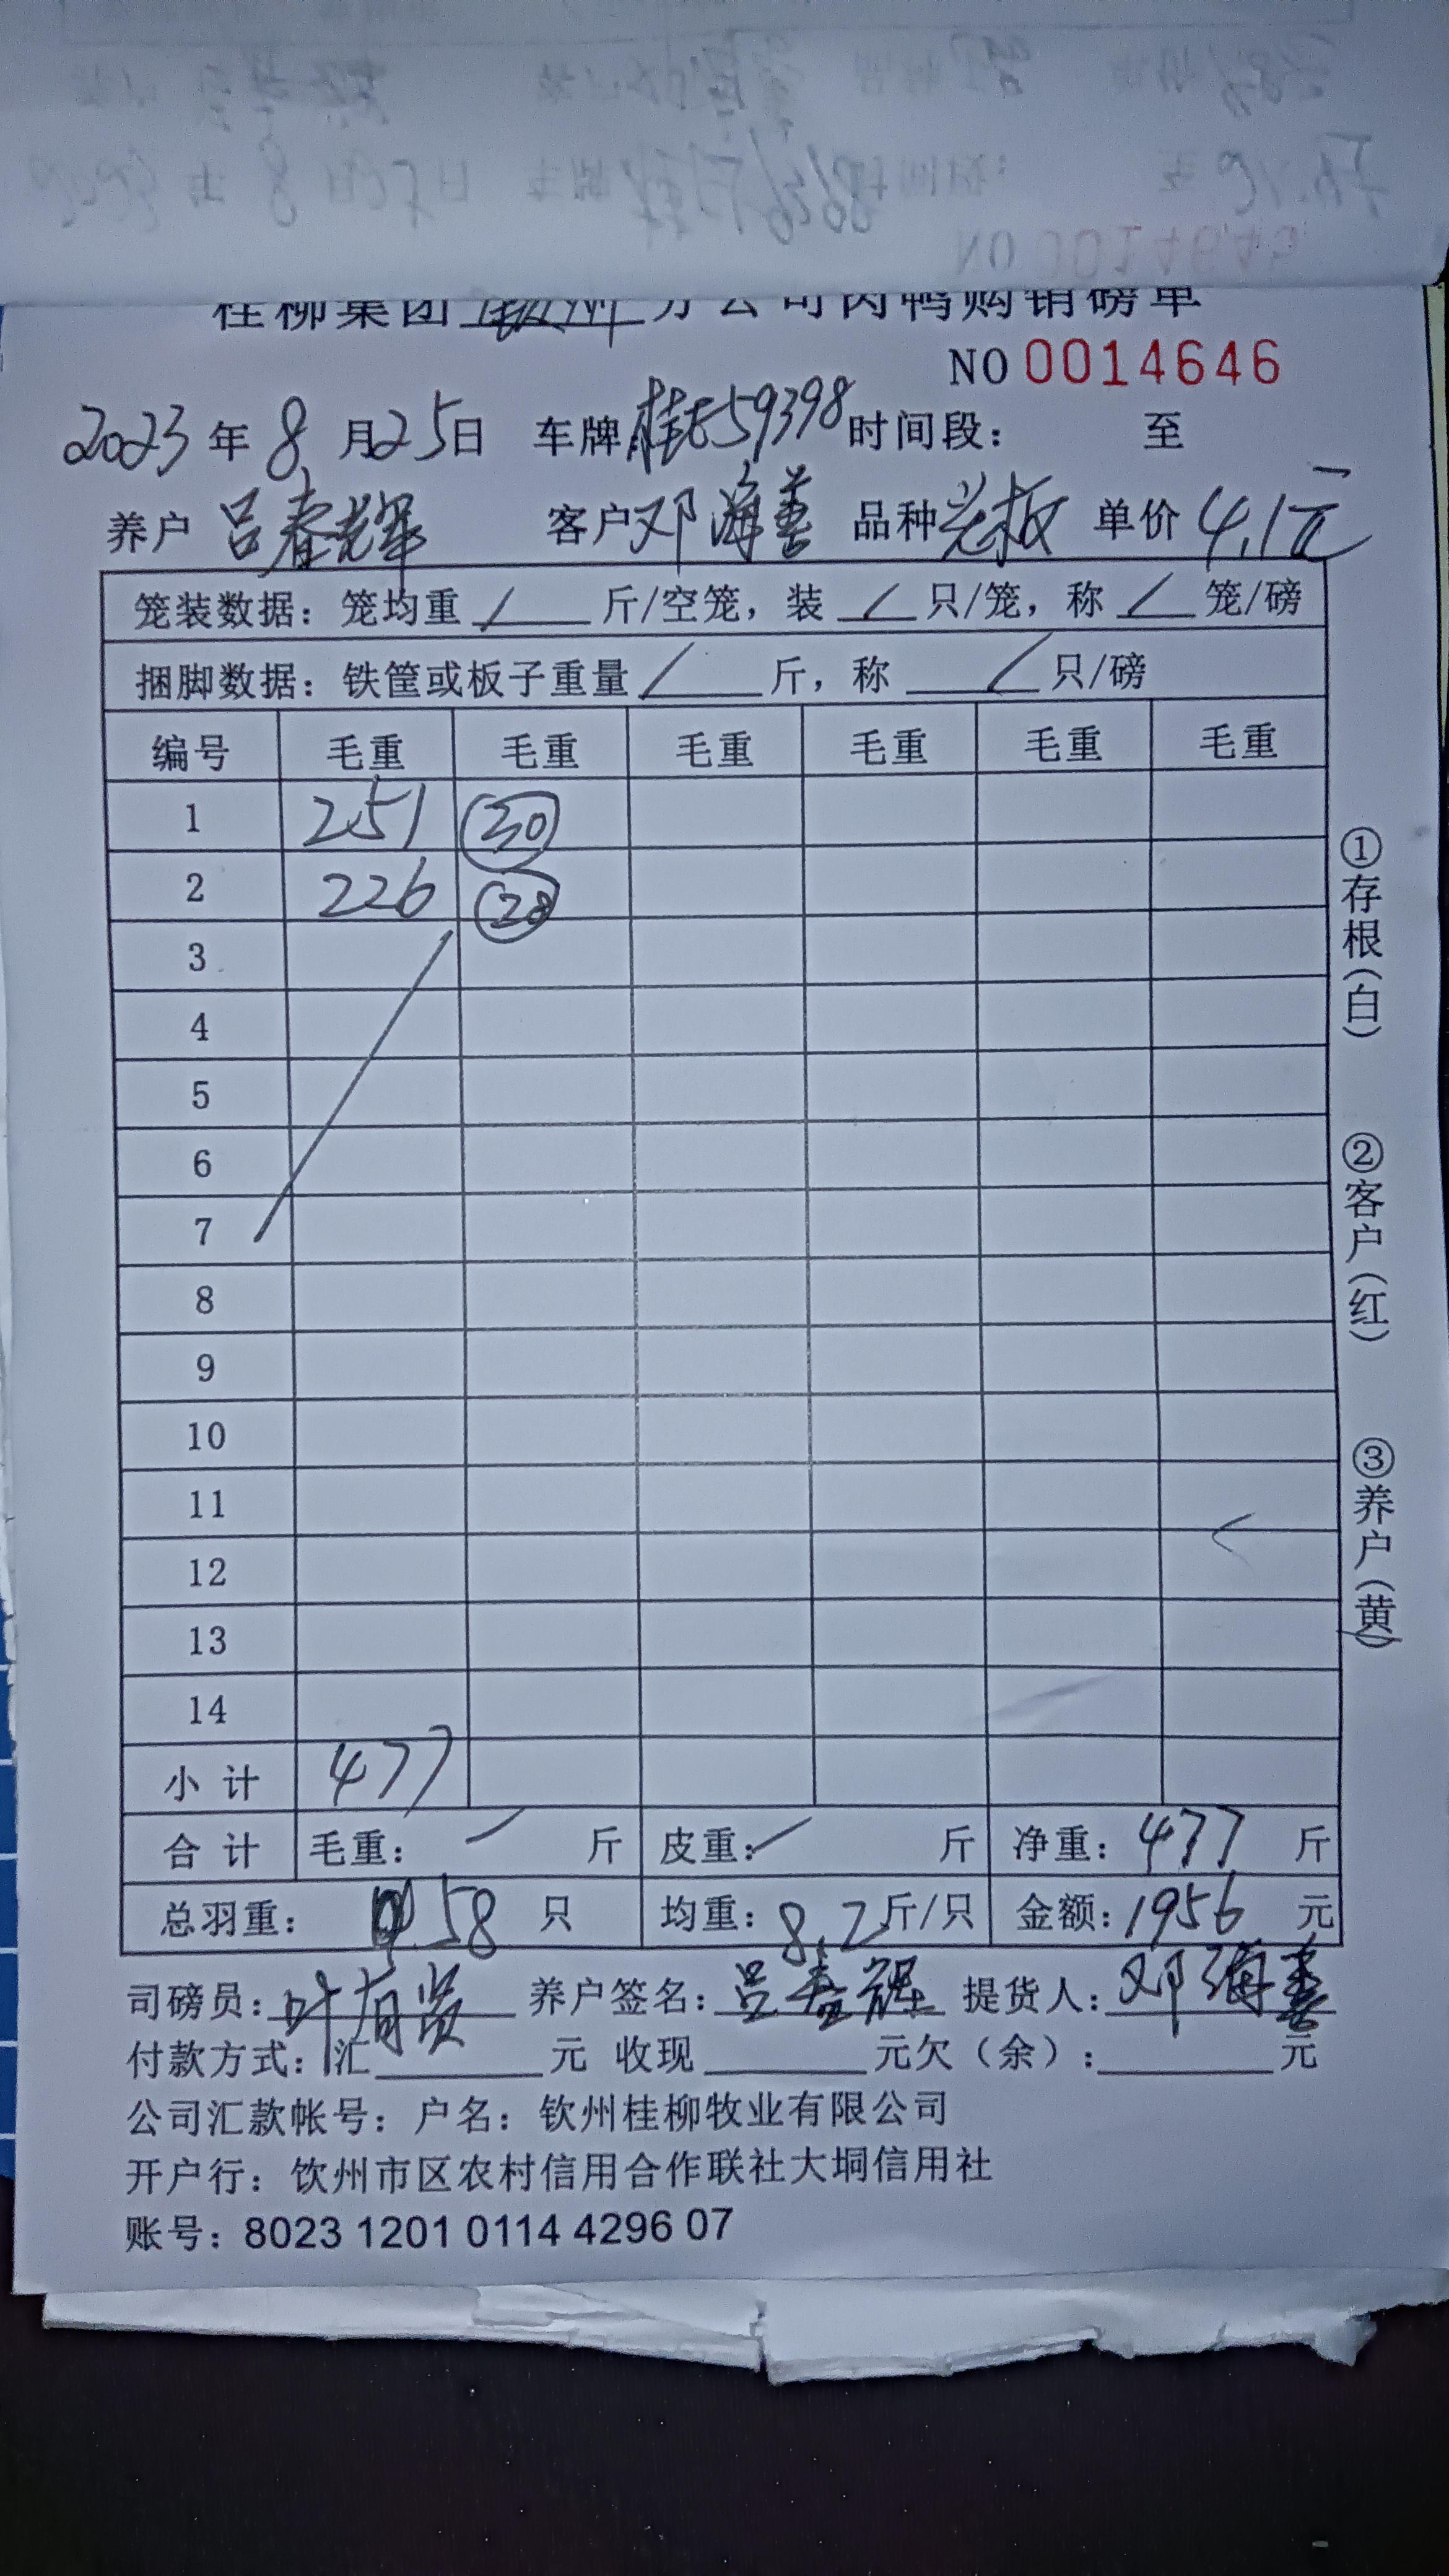 桂柳集团钦州分公司肉鸭购销磅单
NO 0014646
2023年8月25日 车牌桂E59398 时间段: 至
养户 吕春辉 客户 邓海善 品种 光板 单价 4.1元
笼装数据: 笼均重 / 斤/空笼, 装 / 只/笼, 称 / 笼/磅
捆脚数据: 铁筐或板子重量 / 斤, 称 / 只/磅
编号 毛重 毛重 毛重 毛重 毛重 毛重
1 251 30
2 226 28
3
4
5
6
7
8
9
10
11
12
13
14
小计 477
合计 毛重: / 斤 皮重: / 斤 净重: 477 斤
总羽重: 58 只 均重: 8.2斤/只 金额: 1956 元
司磅员: 叶有贤 养户签名: 吕春辉 提货人: 邓海善
付款方式: 汇 元 收现 元欠(余): 元
公司汇款帐号: 户名: 钦州桂柳牧业有限公司
开户行: 钦州市区农村信用合作联社大垌信用社
账号: 8023 1201 0114 4296 07
①存根(白) ②客户(红) ③养户(黄)